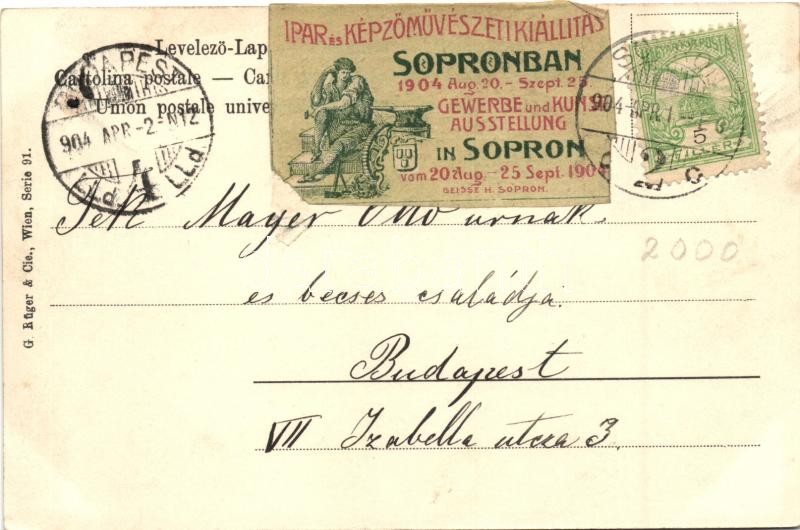 Levelező-Lap
Cartolina postale — Car
Union postale unive
IPAR és KÉPZŐMŰVÉSZETI KIÁLLITÁS
SOPRONBAN
1904 Aug. 20. - Szept. 25
GEWERBE und KUNST
AUSSTELLUNG
IN SOPRON
vom 20 Aug. - 25 Sept. 1904
GEISSE H. SOPRON.
BUDAPEST
904 APR -2 N12
904 APR
MAGYAR KIR. POSTA
5
FILLÉR
G. Rüger & Cie., Wien, Serie 91.
Tek Mayer Ottó urnak
2000
es becses családja
Budapest
VII Izabella utcza 3.